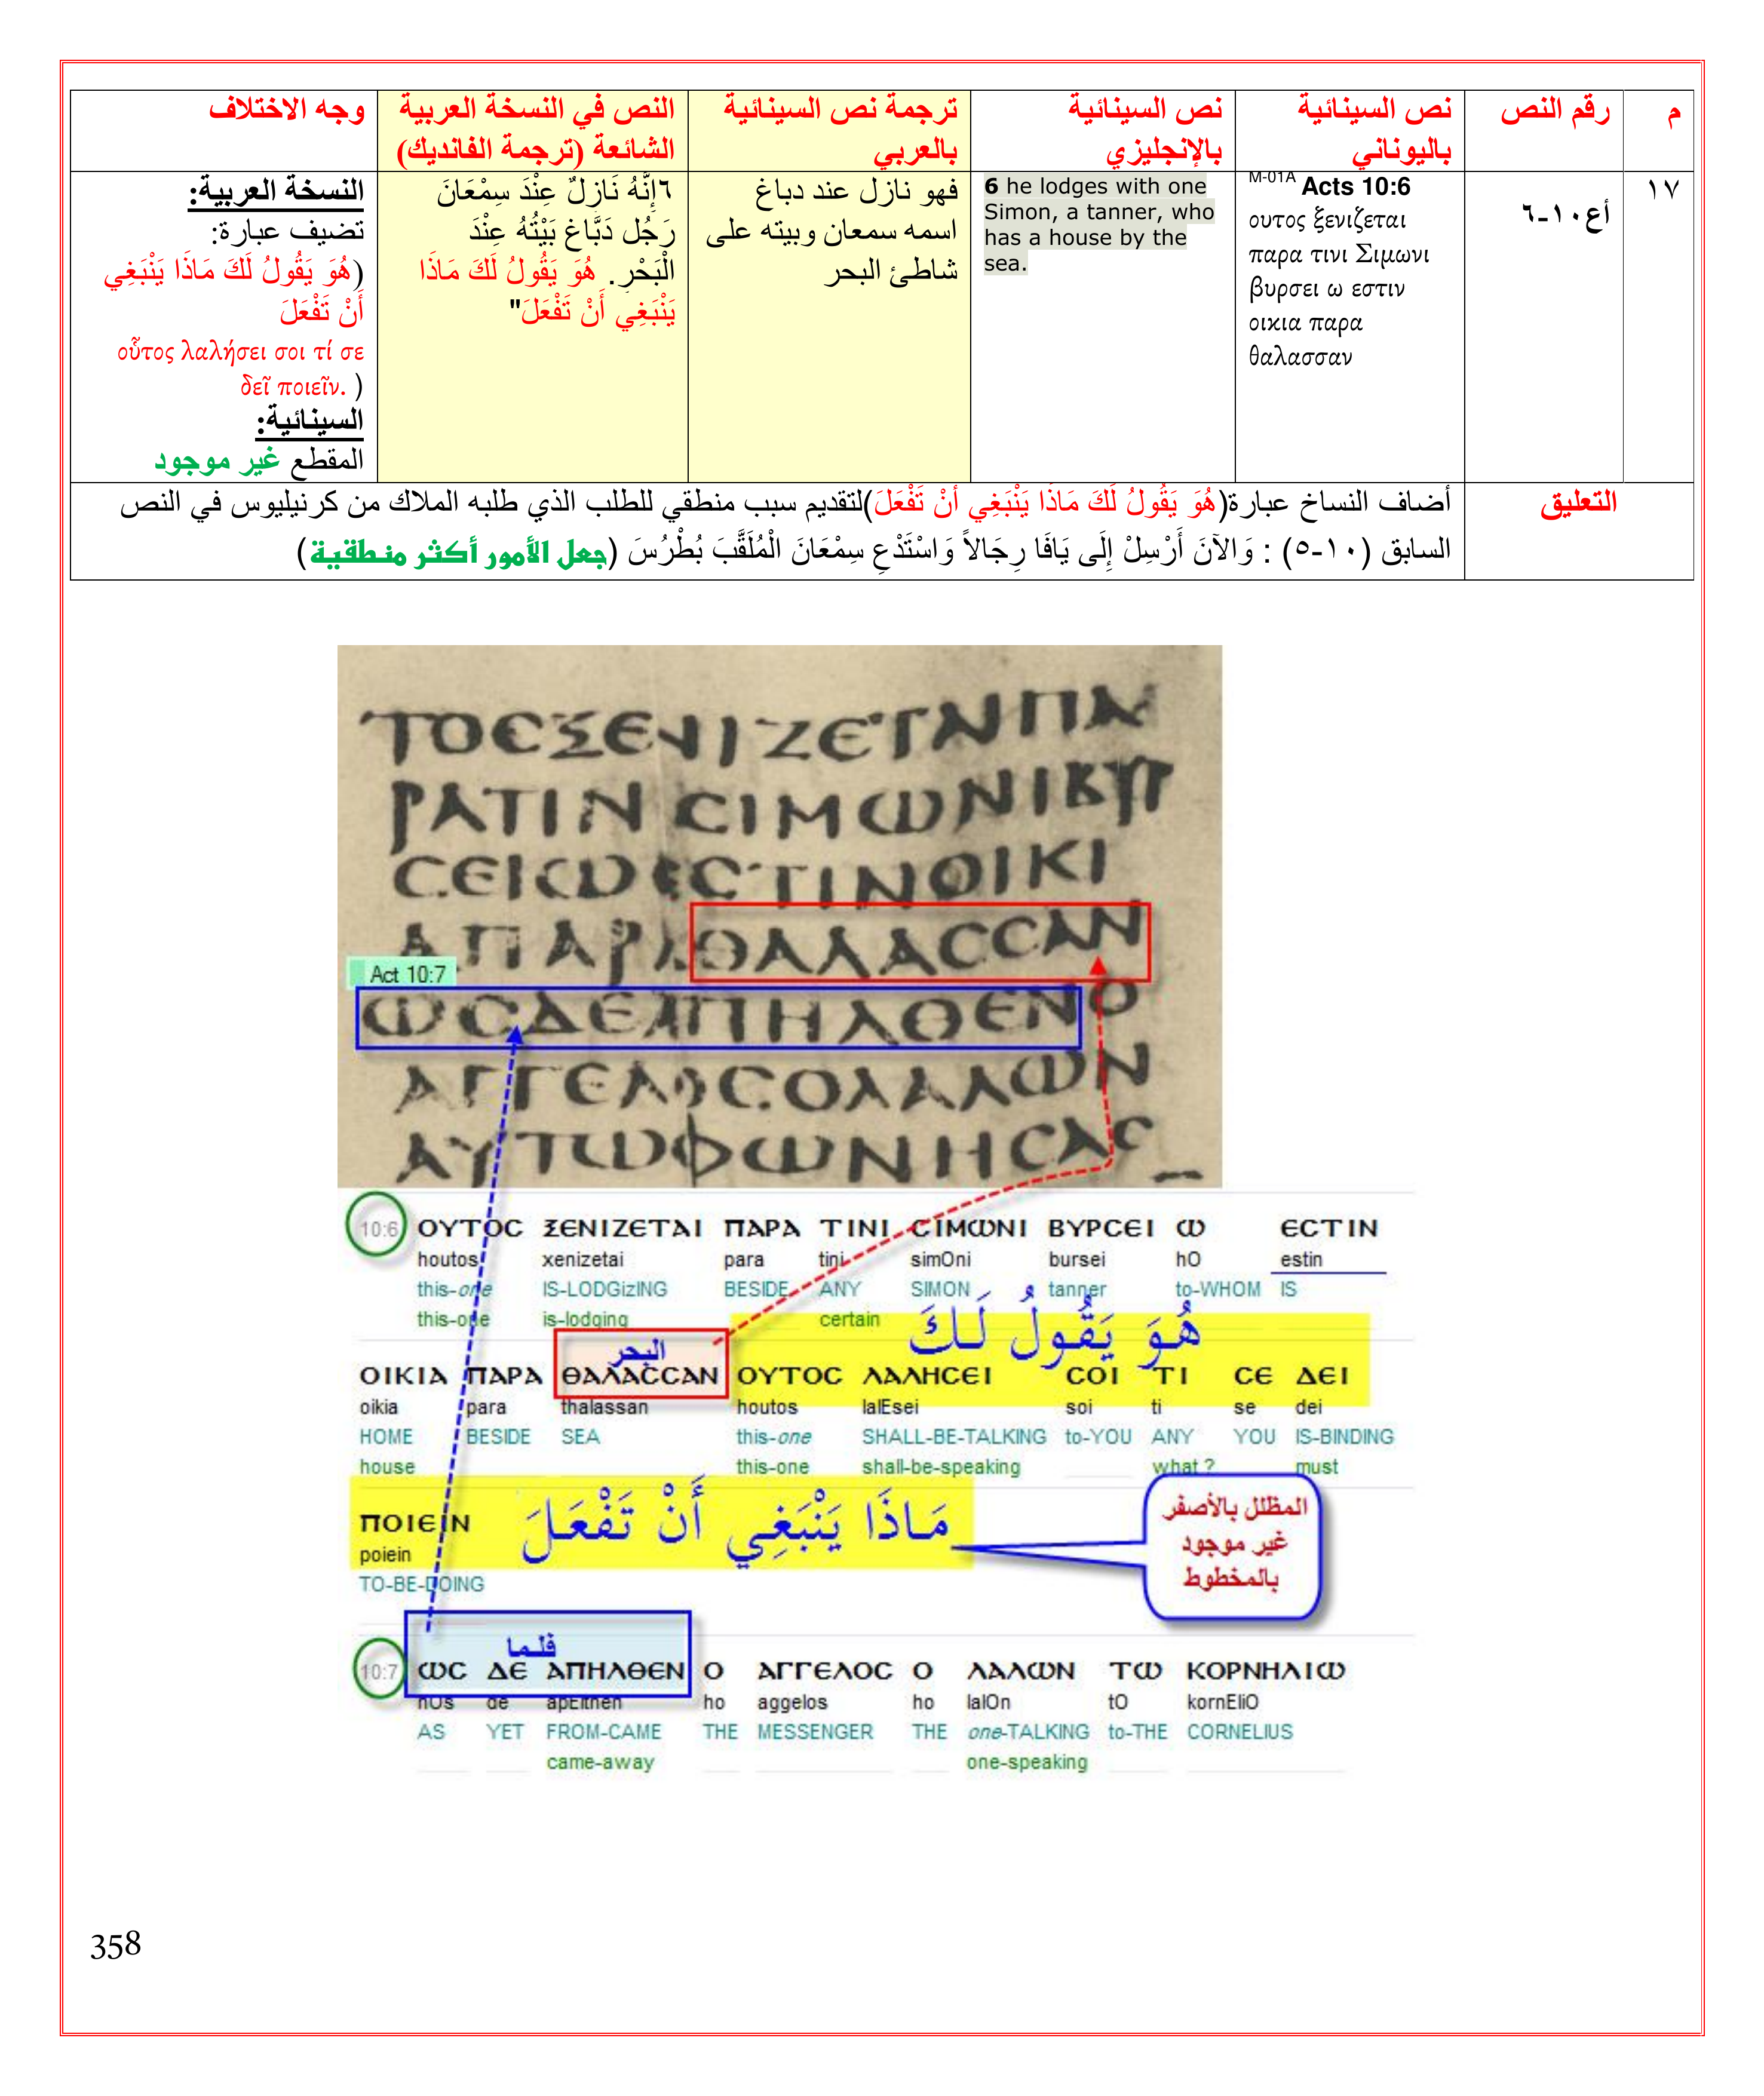 م
رقم النص
نص السينائية
باليوناني
نص السينائية
بالإنجليزي
ترجمة نص السينائية
بالعربي
النص في النسخة العربية
الشائعة (ترجمة الفانديك)
وجه الاختلاف
١٧
أع١٠-٦
M-01A Acts 10:6
ουτος ξενιζεται
παρα τινι Σιμωνι
βυρσει ω εστιν
οικια παρα
θαλασσαν
6 he lodges with one
Simon, a tanner, who
has a house by the
sea.
فهو نازل عند دباغ
اسمه سمعان وبيته على
شاطئ البحر
٦إِنَّهُ نَازِلٌ عِنْدَ سِمْعَانَ
رَجُل دَبَّاغ بَيْتُهُ عِنْدَ
الْبَحْرِ. هُوَ يَقُولُ لَكَ مَاذَا
يَنْبَغِي أَنْ تَفْعَلَ"
النسخة العربية:
تضيف عبارة:
(هُوَ يَقُولُ لَكَ مَاذَا يَنْبَغِي
أَنْ تَفْعَلَ
οὗτος λαλήσει σοι τί σε
δεῖ ποιεῖν. )
السينائية:
المقطع غير موجود
التعليق
أضاف النساخ عبارة(هُوَ يَقُولُ لَكَ مَاذَا يَنْبَغِي أَنْ تَفْعَلَ)لتقديم سبب منطقي للطلب الذي طلبه الملاك من كرنيليوس في النص
السابق (١٠-٥) : وَالآنَ أَرْسِلْ إِلَى يَافَا رِجَالاً وَاسْتَدْعِ سِمْعَانَ الْمُلَقَّبَ بُطْرُسَ (جعل الأمور أكثر منطقية)
ΤΟCΞΕΝΙΖΕΤΑΙΠΑ
ΡΑΤΙΝΙ CΙΜΩΝΙΒΥΡ
CΕΙΩΕCΤΙΝΟΙΚΙ
ΑΠΑΡΑΘΑΛΑCCΑΝ
Act 10:7
ΩCΔΕΑΠΗΛΘΕΝΟ
ΑΓΓΕΛΟCΟΛΑΛΩΝ
ΑΥΤΩΦΩΝΗCΑC
10:6 ΟΥΤΟC ΞΕΝΙΖΕΤΑΙ ΠΑΡΑ ΤΙΝΙ CΙΜΩΝΙ ΒΥΡCΕΙ Ω ΕCΤΙΝ
houtos xenizetai para tini simOni bursei hO estin
this-one IS-LODGizING BESIDE ANY SIMON tanner to-WHOM IS
this-one is-lodging certain
هُوَ يَقُولُ لَكَ
البحر
ΟΙΚΙΑ ΠΑΡΑ ΘΑΛΑCCΑΝ ΟΥΤΟC ΛΑΛΗCΕΙ CΟΙ ΤΙ CΕ ΔΕΙ
oikia para thalassan houtos lalEsei soi ti se dei
HOME BESIDE SEA this-one SHALL-BE-TALKING to-YOU ANY YOU IS-BINDING
house this-one shall-be-speaking what ? must
ΠΟΙΕΙΝ
مَاذَا يَنْبَغِي أَنْ تَفْعَلَ
poiein
TO-BE-DOING
المظلل بالأصفر
غير موجود
بالمخطوط
فلما
10:7 ΩC ΔΕ ΑΠΗΛΘΕΝ Ο ΑΓΓΕΛΟC Ο ΛΑΛΩΝ ΤΩ ΚΟΡΝΗΛΙΩ
hOs de apElthen ho aggelos ho lalOn tO kornEliO
AS YET FROM-CAME THE MESSENGER THE one-TALKING to-THE CORNELIUS
came-away one-speaking
358